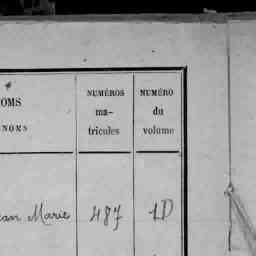 OMS
NOMS
NUMÉROS
ma-
tricules
NUMÉRO
du
volume
ean Marie
487
1D